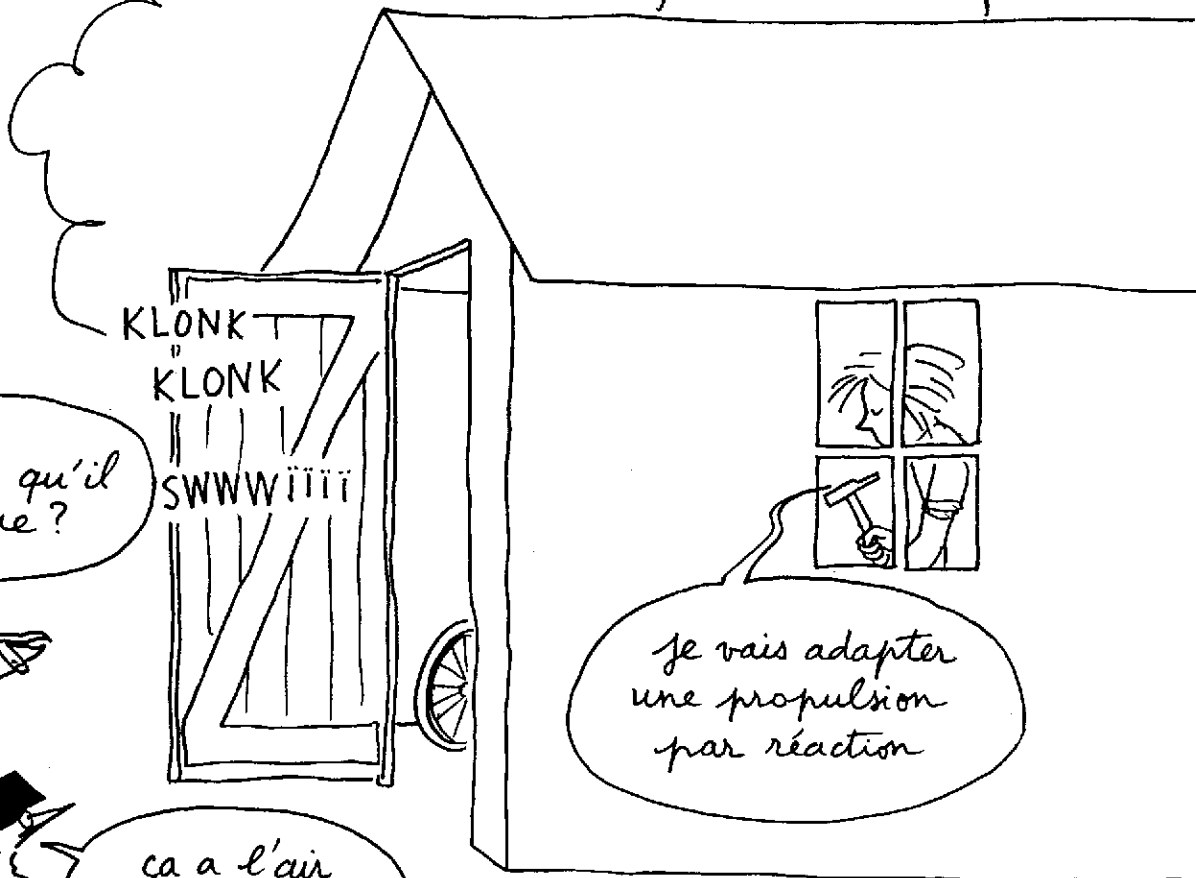 KLONK
KLONK
SWWWïïïï
qu'il
?
je vais adapter
une propulsion
par réaction
ça a l'air